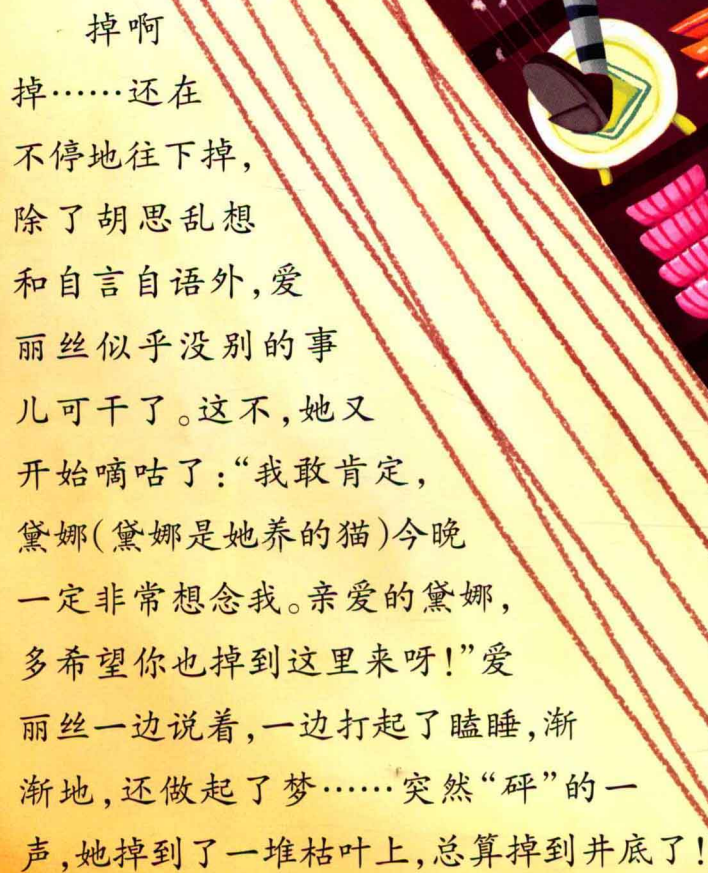 掉啊
掉……还在
不停地往下掉，
除了胡思乱想
和自言自语外，爱
丽丝似乎没别的事
儿可干了。这不，她又
开始嘀咕了：“我敢肯定，
黛娜（黛娜是她养的猫）今晚
一定非常想念我。亲爱的黛娜，
多希望你也掉到这里来呀！”爱
丽丝一边说着，一边打起了瞌睡，渐
渐地，还做起了梦……突然“砰”的一
声，她掉到了一堆枯叶上，总算掉到井底了！